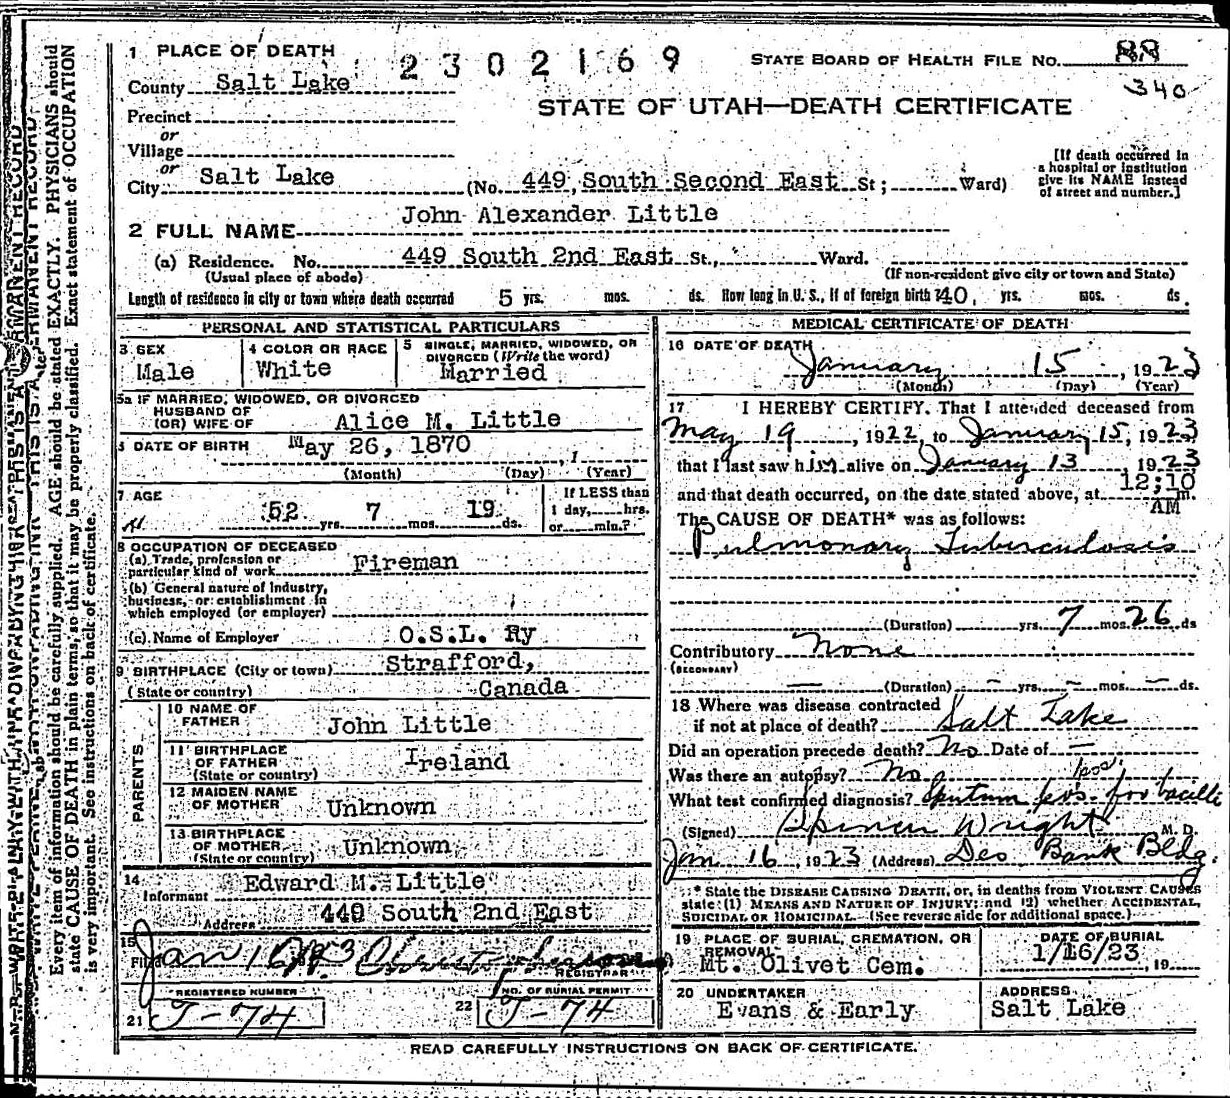 1 PLACE OF DEATH
2302169
STATE BOARD OF HEALTH FILE NO. 88
340
County Salt Lake
STATE OF UTAH—DEATH CERTIFICATE
Precinct
or
Village
or
City Salt Lake (No. 449, South Second East St; Ward)
[If death occurred in
a hospital or institution
give its NAME instead
of street and number.]
2 FULL NAME John Alexander Little
(a) Residence. No. 449 South 2nd East St., Ward.
(Usual place of abode) (If non-resident give city or town and State)
Length of residence in city or town where death occurred 5 yrs. mos. ds. How long in U. S., if of foreign birth? 40, yrs. mos. ds.
PERSONAL AND STATISTICAL PARTICULARS
3 SEX
Male
4 COLOR OR RACE
White
5 SINGLE, MARRIED, WIDOWED, OR
DIVORCED (Write the word)
Married
5a IF MARRIED, WIDOWED, OR DIVORCED
HUSBAND OF
(OR) WIFE OF Alice M. Little
6 DATE OF BIRTH May 26, 1870, 1
(Month) (Day) (Year)
7 AGE
52 yrs. 7 mos. 19 ds.
If LESS than
1 day, hrs.
or min.?
8 OCCUPATION OF DECEASED
(a) Trade, profession or
particular kind of work Fireman
(b) General nature of Industry,
business, or establishment in
which employed (or employer)
(c) Name of Employer O.S.L. Ry
9 BIRTHPLACE (City or town) Strafford,
(State or country) Canada
PARENTS
10 NAME OF
FATHER John Little
11 BIRTHPLACE
OF FATHER
(State or country) Ireland
12 MAIDEN NAME
OF MOTHER Unknown
13 BIRTHPLACE
OF MOTHER
(State or country) Unknown
14
Informant Edward M. Little
Address 449 South 2nd East
15
Filed Jan 16
REGISTRAR
REGISTERED NUMBER
21 J-74
NO. OF BURIAL PERMIT
22 J-74
MEDICAL CERTIFICATE OF DEATH
16 DATE OF DEATH
January 15, 1923
(Month) (Day) (Year)
17 I HEREBY CERTIFY, That I attended deceased from
May 19, 1922, to January 15, 1923
that I last saw him alive on January 13, 1923
and that death occurred, on the date stated above, at 12;10 m.
AM
The CAUSE OF DEATH* was as follows:
Pulmonary Tuberculosis
(Duration) yrs. 7 mos. 26 ds
Contributory None
(SECONDARY)
— (Duration) – yrs. – mos. – ds.
18 Where was disease contracted
if not at place of death? Salt Lake
Did an operation precede death? No Date of —
Was there an autopsy? No
pos.
What test confirmed diagnosis? Sputum pos. for bacilli
(Signed) Spencer Wright M. D.
Jan 16, 1923 (Address) Des Bank Bldg.
* State the DISEASE CAUSING DEATH, or, in deaths from VIOLENT CAUSES
state (1) MEANS AND NATURE OF INJURY; and (2) whether ACCIDENTAL,
SUICIDAL OR HOMICIDAL. (See reverse side for additional space.)
19 PLACE OF BURIAL, CREMATION, OR
REMOVAL
Mt. Olivet Cem.
DATE OF BURIAL
1/16/23, 19
20 UNDERTAKER
Evans & Early
ADDRESS
Salt Lake
READ CAREFULLY INSTRUCTIONS ON BACK OF CERTIFICATE.
Every item of information should be carefully supplied. AGE should be stated EXACTLY. PHYSICIANS should
state CAUSE OF DEATH in plain terms, so that it may be properly classified. Exact statement of OCCUPATION
is very important. See instructions on back of certificate.